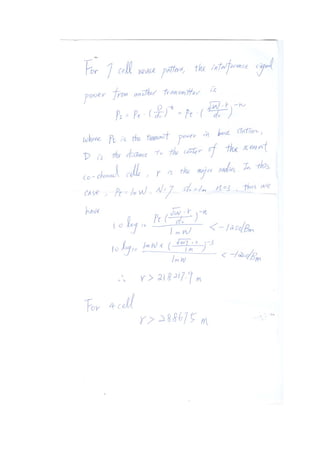 For 7 cell reuse pattern, the interference signal
power from another transmitter is
P_I = P_t · (D/d₀)^-n = P_t · (√3N · r/d₀)^-n
where Pt is the transmit power in base station,
D is the distance to the center of the
co-channel cells, r is the major radius. In this
case, Pt = 1mW, N=7, d₀=1m, n=3, thus we
have
10 log₁₀ Pt (√3N · r/d₀)^-n / 1mW < -120dBm
10 log₁₀ 1mW × (/1m)^-3 / 1mW < -120dBm
∴ r > 2182.17.9 m
For 4 cell
r > 2886.75 m